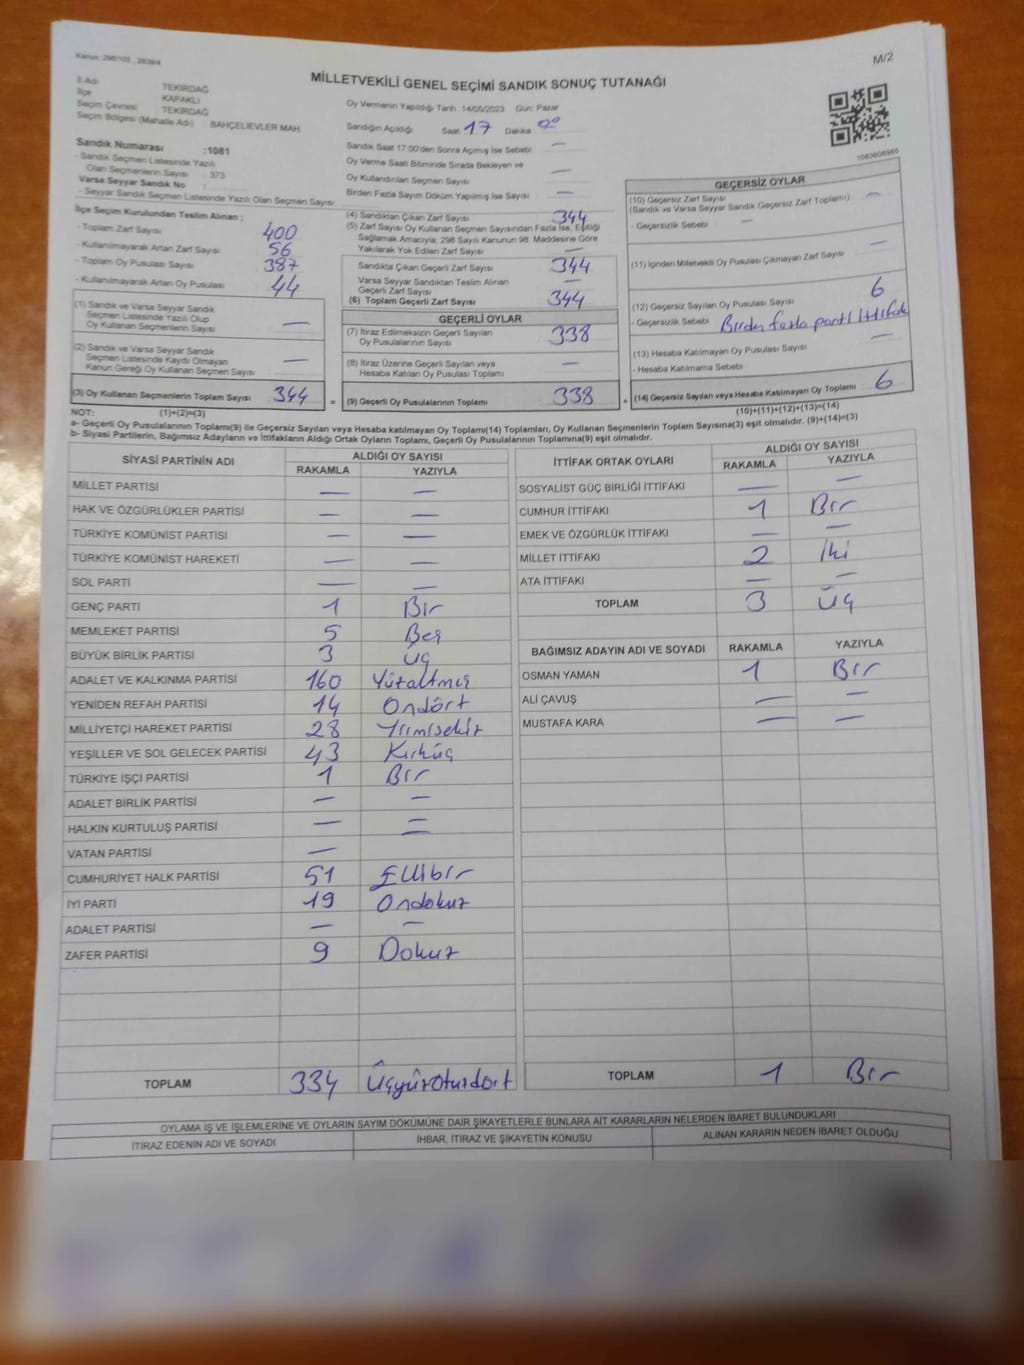 Kanun: 298/105 , 2839/4
M/2
MİLLETVEKİLİ GENEL SEÇİMİ SANDIK SONUÇ TUTANAĞI
İl Adı TEKİRDAĞ
İlçe KAPAKLI
Seçim Çevresi TEKİRDAĞ
Seçim Bölgesi (Mahalle Adı) : BAHÇELİEVLER MAH.
Sandık Numarası :1081
- Sandık Seçmen Listesinde Yazılı
Olan Seçmenlerin Sayısı : 373
Varsa Seyyar Sandık No :
- Seyyar Sandık Seçmen Listesinde Yazılı Olan Seçmen Sayısı :
Oy Vermenin Yapıldığı Tarih :14/05/2023 Gün: Pazar
Sandığın Açıldığı Saat 17 Dakika 00
Sandık Saat 17:00'den Sonra Açılmış İse Sebebi : —
Oy Verme Saati Bitiminde Sırada Bekleyen ve
Oy Kullandırılan Seçmen Sayısı —
Birden Fazla Sayım Döküm Yapılmış İse Sayısı : —
1083608965
İlçe Seçim Kurulundan Teslim Alınan ;
- Toplam Zarf Sayısı 400
- Kullanılmayarak Artan Zarf Sayısı 56
- Toplam Oy Pusulası Sayısı 387
- Kullanılmayarak Artan Oy Pusulası : 44
(1) Sandık ve Varsa Seyyar Sandık
Seçmen Listesinde Yazılı Olup
Oy Kullanan Seçmenlerin Sayısı : —
(2) Sandık ve Varsa Seyyar Sandık
Seçmen Listesinde Kayıtlı Olmayan
Kanun Gereği Oy Kullanan Seçmen Sayısı : —
(3) Oy Kullanan Seçmenlerin Toplam Sayısı : 344
(4) Sandıktan Çıkan Zarf Sayısı 344
(5) Zarf Sayısı Oy Kullanan Seçmen Sayısından Fazla İse, Eşitliği
Sağlamak Amacıyla, 298 Sayılı Kanunun 98. Maddesine Göre
Yakılarak Yok Edilen Zarf Sayısı —
Sandıkta Çıkan Geçerli Zarf Sayısı 344
Varsa Seyyar Sandıktan Teslim Alınan
Geçerli Zarf Sayısı —
(6) Toplam Geçerli Zarf Sayısı 344
GEÇERLİ OYLAR
(7) İtiraz Edilmeksizin Geçerli Sayılan
Oy Pusulalarının Sayısı : 338
(8) İtiraz Üzerine Geçerli Sayılan veya
Hesaba Katılan Oy Pusulası Toplamı —
= (9) Geçerli Oy Pusulalarının Toplamı 338 +
GEÇERSİZ OYLAR
(10) Geçersiz Zarf Sayısı
(Sandık ve Varsa Seyyar Sandık Geçersiz Zarf Toplamı) : —
- Geçersizlik Sebebi : —
(11) İçinden Milletvekili Oy Pusulası Çıkmayan Zarf Sayısı : —
(12) Geçersiz Sayılan Oy Pusulası Sayısı 6
- Geçersizlik Sebebi : Birden fazla parti İttifak
(13) Hesaba Katılmayan Oy Pusulası Sayısı : —
- Hesaba Katılmama Sebebi
(14) Geçersiz Sayılan veya Hesaba Katılmayan Oy Toplamı : 6
NOT: (1)+(2)=(3) (10)+(11)+(12)+(13)=(14)
a- Geçerli Oy Pusulalarının Toplamı(9) ile Geçersiz Sayılan veya Hesaba katılmayan Oy Toplamı(14) Toplamları, Oy Kullanan Seçmenlerin Toplam Sayısına(3) eşit olmalıdır. (9)+(14)=(3)
b- Siyasi Partilerin, Bağımsız Adayların ve İttifakların Aldığı Ortak Oyların Toplamı, Geçerli Oy Pusulalarının Toplamına(9) eşit olmalıdır.
SİYASİ PARTİNİN ADI ALDIĞI OY SAYISI
RAKAMLA YAZIYLA
MİLLET PARTİSİ — —
HAK VE ÖZGÜRLÜKLER PARTİSİ — —
TÜRKİYE KOMÜNİST PARTİSİ — —
TÜRKİYE KOMÜNİST HAREKETİ — —
SOL PARTİ — —
GENÇ PARTİ 1 Bir
MEMLEKET PARTİSİ 5 Beş
BÜYÜK BİRLİK PARTİSİ 3 üç
ADALET VE KALKINMA PARTİSİ 160 Yüzaltmış
YENİDEN REFAH PARTİSİ 14 Ondört
MİLLİYETÇİ HAREKET PARTİSİ 28 Yirmisekiz
YEŞİLLER VE SOL GELECEK PARTİSİ 43 Kırküç
TÜRKİYE İŞÇİ PARTİSİ 1 Bir
ADALET BİRLİK PARTİSİ — —
HALKIN KURTULUŞ PARTİSİ — —
VATAN PARTİSİ — —
CUMHURİYET HALK PARTİSİ 51 Ellibir
İYİ PARTİ 19 Ondokuz
ADALET PARTİSİ — —
ZAFER PARTİSİ 9 Dokuz
TOPLAM 334 Üçyüzotuzdört
İTTİFAK ORTAK OYLARI ALDIĞI OY SAYISI
RAKAMLA YAZIYLA
SOSYALİST GÜÇ BİRLİĞİ İTTİFAKI — —
CUMHUR İTTİFAKI 1 Bir
EMEK VE ÖZGÜRLÜK İTTİFAKI — —
MİLLET İTTİFAKI 2 İki
ATA İTTİFAKI — —
TOPLAM 3 Üç
BAĞIMSIZ ADAYIN ADI VE SOYADI RAKAMLA YAZIYLA
OSMAN YAMAN 1 Bir
ALİ ÇAVUŞ — —
MUSTAFA KARA — —
TOPLAM 1 Bir
OYLAMA İŞ VE İŞLEMLERİNE VE OYLARIN SAYIM DÖKÜMÜNE DAİR ŞİKAYETLERLE BUNLARA AİT KARARLARIN NELERDEN İBARET BULUNDUKLARI
İTİRAZ EDENİN ADI VE SOYADI İHBAR, İTİRAZ VE ŞİKAYETİN KONUSU ALINAN KARARIN NEDEN İBARET OLDUĞU